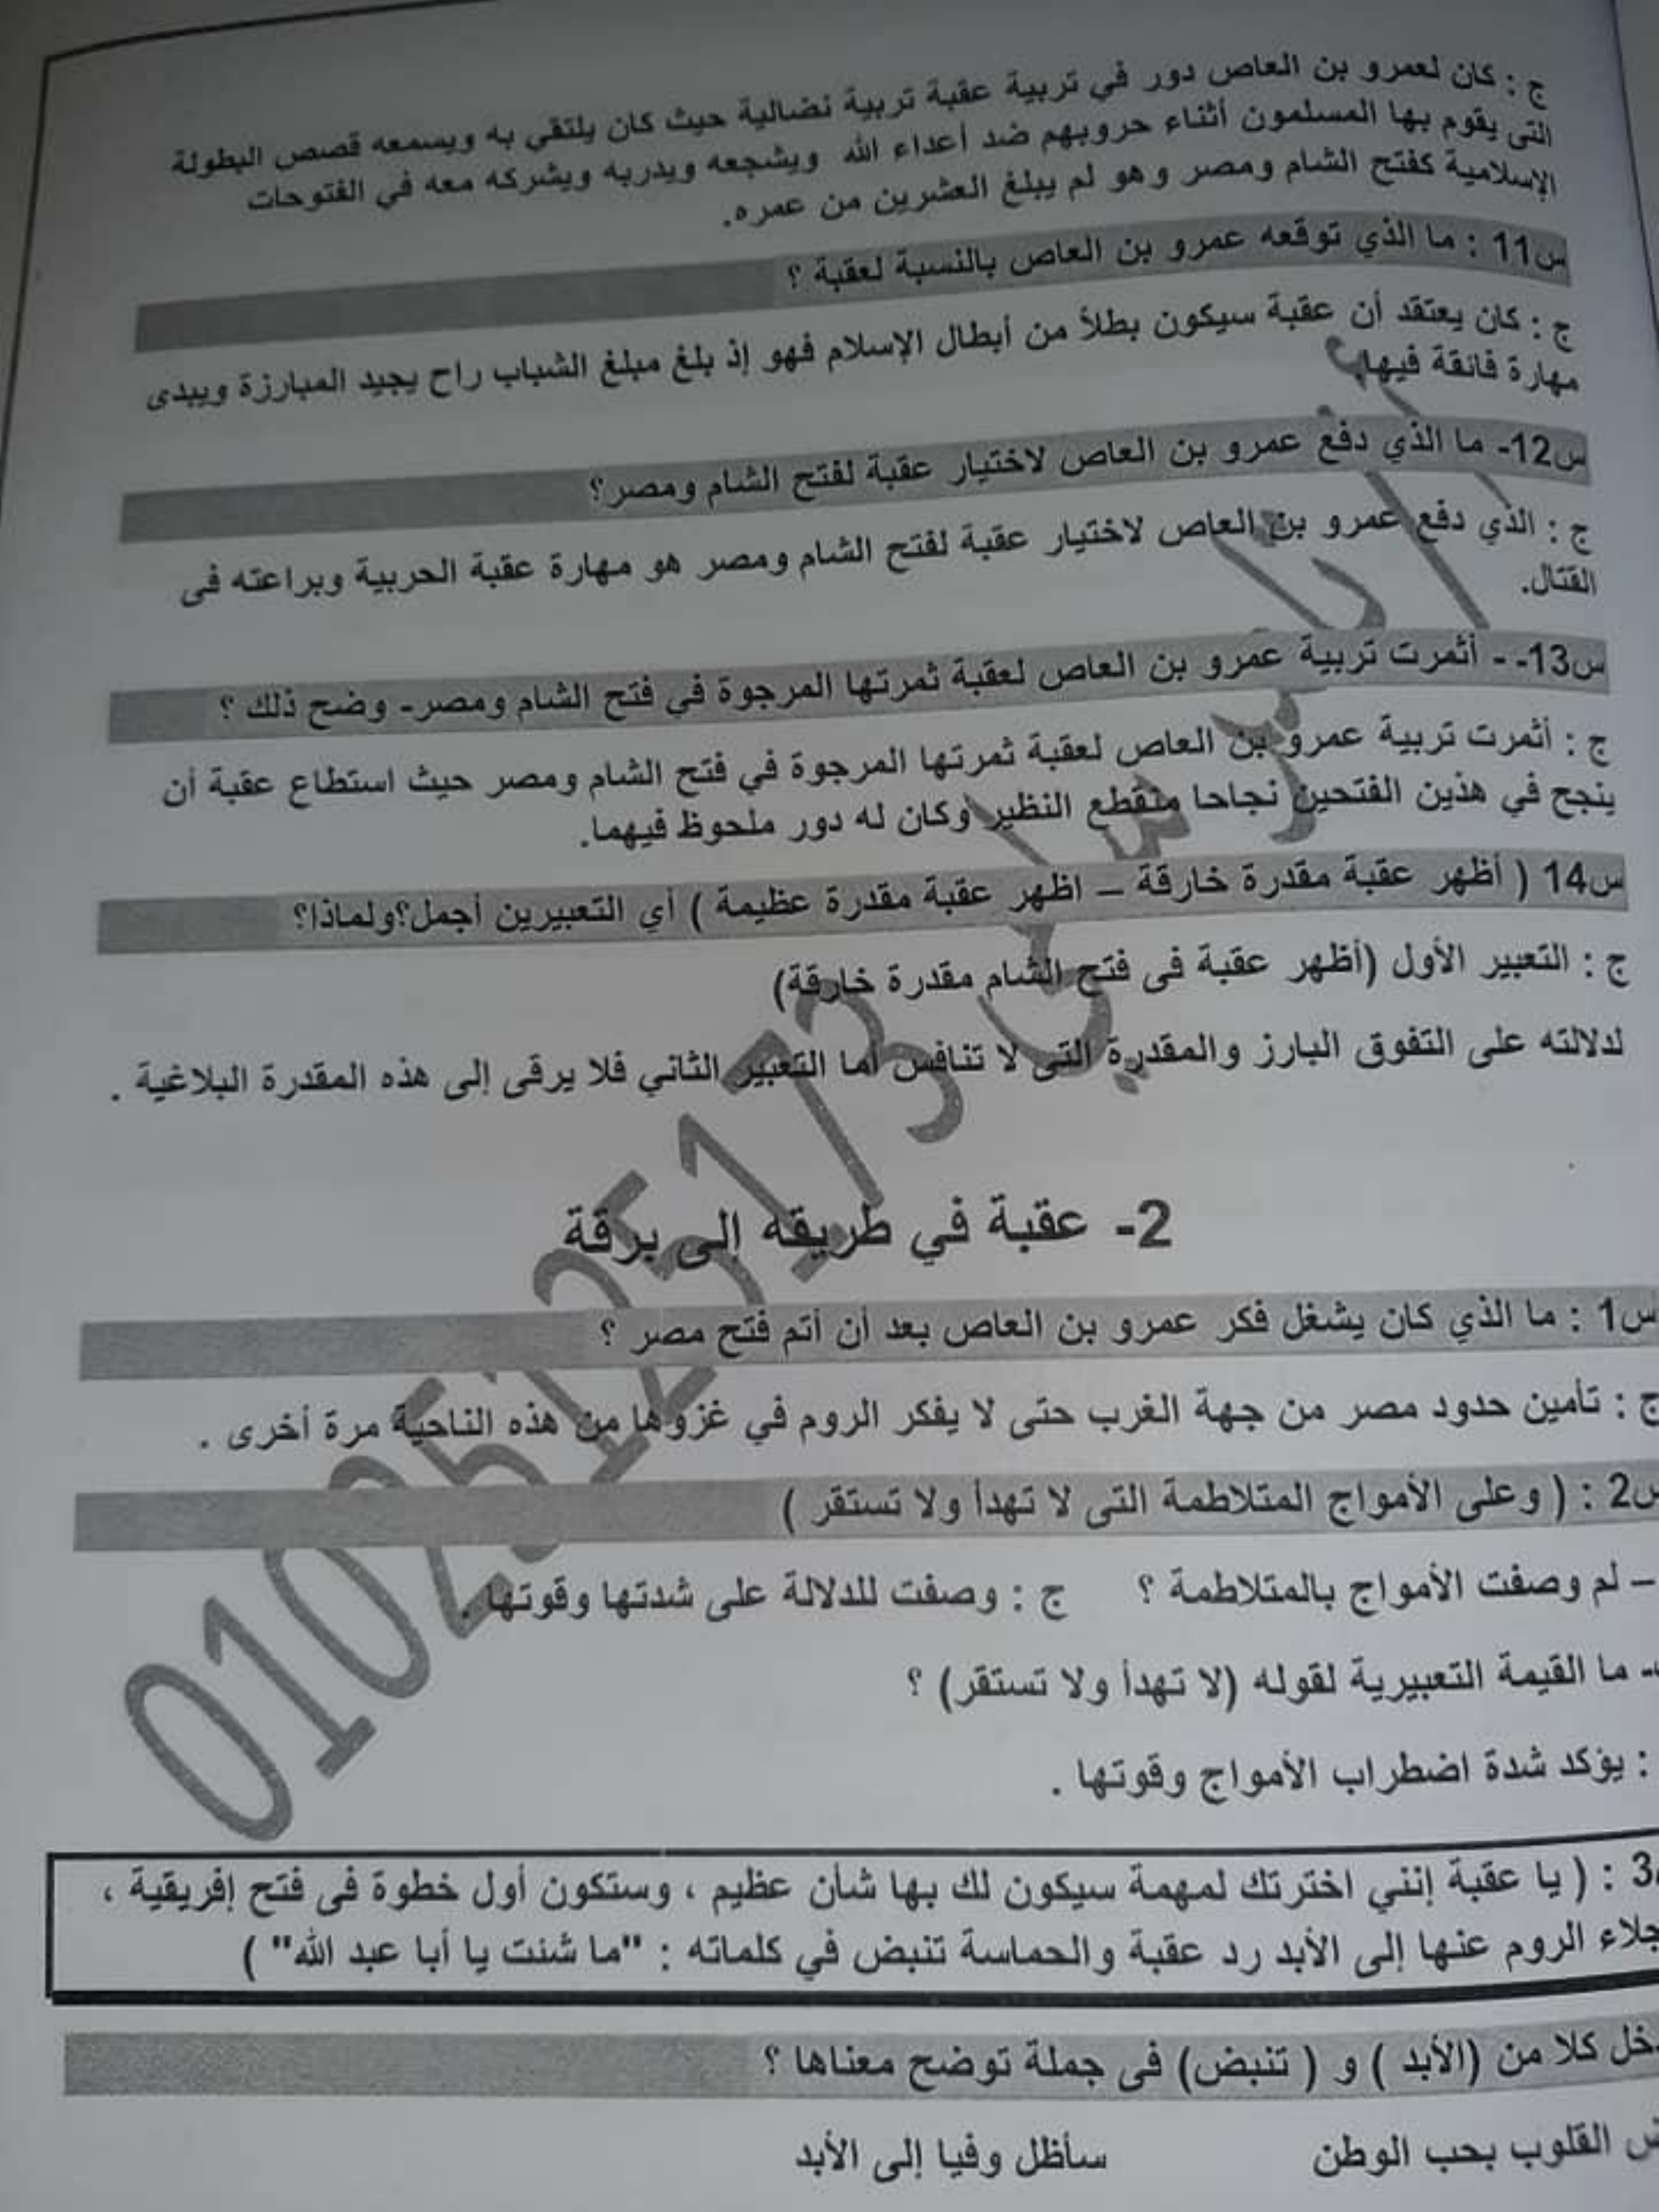 ج : كان لعمرو بن العاص دور في تربية عقبة تربية نضالية حيث كان يلتقي به ويسمعه قصص البطولة
التى يقوم بها المسلمون أثناء حروبهم ضد أعداء الله ويشجعه ويدربه ويشركه معه في الفتوحات
الإسلامية كفتح الشام ومصر وهو لم يبلغ العشرين من عمره.
س11 : ما الذي توقعه عمرو بن العاص بالنسبة لعقبة ؟
ج : كان يعتقد أن عقبة سيكون بطلاً من أبطال الإسلام فهو إذ بلغ مبلغ الشباب راح يجيد المبارزة ويبدى
مهارة فائقة فيها
س12- ما الذي دفع عمرو بن العاص لاختيار عقبة لفتح الشام ومصر؟
ج : الذي دفع عمرو بن العاص لاختيار عقبة لفتح الشام ومصر هو مهارة عقبة الحربية وبراعته فى
القتال.
س13- - أثمرت تربية عمرو بن العاص لعقبة ثمرتها المرجوة في فتح الشام ومصر- وضح ذلك ؟
ج : أثمرت تربية عمرو بن العاص لعقبة ثمرتها المرجوة في فتح الشام ومصر حيث استطاع عقبة أن
ينجح في هذين الفتحين نجاحا منقطع النظير وكان له دور ملحوظ فيهما.
س14 ( أظهر عقبة مقدرة خارقة – اظهر عقبة مقدرة عظيمة ) أي التعبيرين أجمل؟ولماذا؟
ج : التعبير الأول (أظهر عقبة فى فتح الشام مقدرة خارقة)
لدلالته على التفوق البارز والمقدرة التى لا تنافس أما التعبير الثاني فلا يرقى إلى هذه المقدرة البلاغية .
2- عقبة في طريقه إلى برقة
س1 : ما الذي كان يشغل فكر عمرو بن العاص بعد أن أتم فتح مصر ؟
ج : تأمين حدود مصر من جهة الغرب حتى لا يفكر الروم في غزوها من هذه الناحية مرة أخرى .
س2 : ( وعلى الأمواج المتلاطمة التى لا تهدأ ولا تستقر )
– لم وصفت الأمواج بالمتلاطمة ؟ ج : وصفت للدلالة على شدتها وقوتها .
- ما القيمة التعبيرية لقوله (لا تهدأ ولا تستقر) ؟
: يؤكد شدة اضطراب الأمواج وقوتها .
3 : ( يا عقبة إنني اخترتك لمهمة سيكون لك بها شأن عظيم ، وستكون أول خطوة فى فتح إفريقية ،
جلاء الروم عنها إلى الأبد رد عقبة والحماسة تنبض في كلماته : "ما شئت يا أبا عبد الله" )
كلا من (الأبد ) و ( تنبض) فى جملة توضح معناها ؟
القلوب بحب الوطن سأظل وفيا إلى الأبد